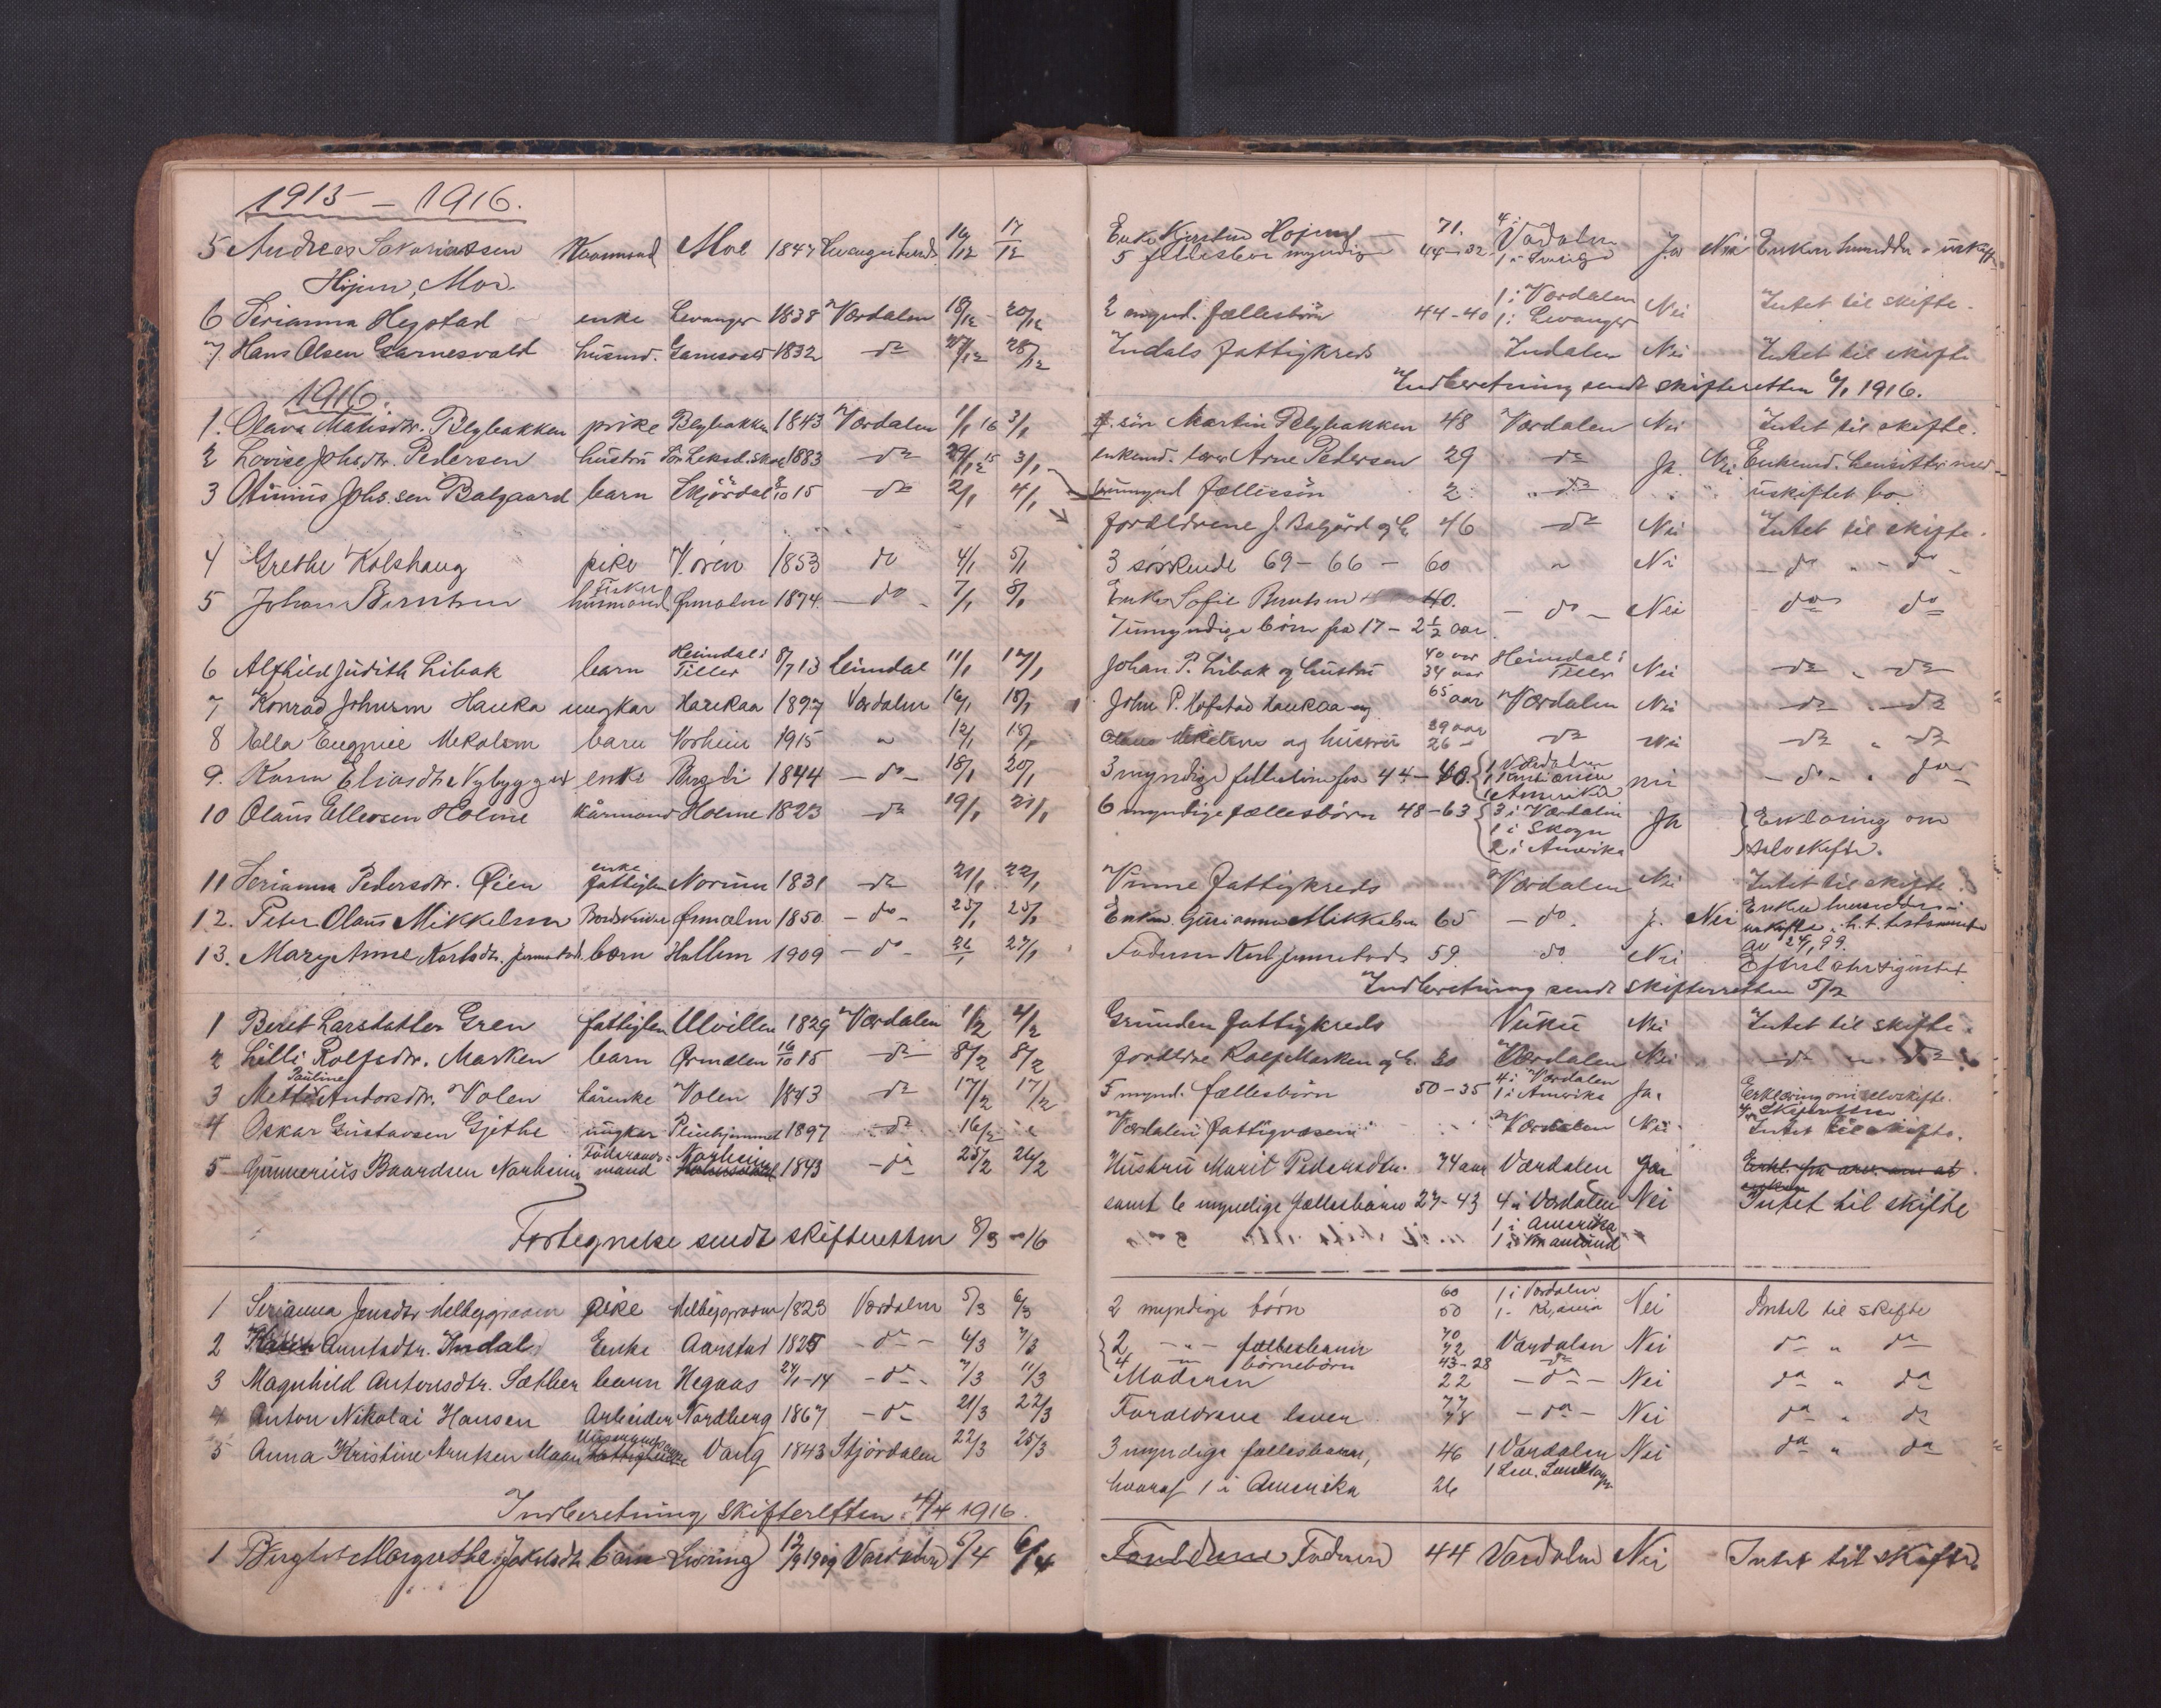 1915 – 1916.
5 Andreas Sakariassen Kaarmand Moe 1847 16/12 17/12 Enke Kjerstine Hojem 71. 4 i Værdalen Ja Nei
Hojem, Moe 5 fællesbør myndige 44-32 1 i Sverige
6 Serianna Hegstad enke Levanger 1838 Værdalen 18/12 20/12 2 mynd. fællesbörn 44-40 1 i Værdalen 1 i Levanger Nei Intet til skifte.
7 Hans Olsen Garnesvald husmd. 1832 do 27/12 28/12 Indals fattigkreds Indalen Nei Intet til skifte
Indberetning sendt skifteretten 6/1 1916.
1916.
1. Olava Matisdtr. Blybakken pike Blybakken 1843 Værdalen 1/1 16 3/1 sön Martin Blybakken 48 Værdalen Nei Intet til skifte.
2 Lovise Johsdtr. Pedersen hustru 1883 do 29/12 15 3/1 enkemd. lærer Arne Pedersen 29 do Ja. Nei Enkemd. hensitter med
3 Johs.sen Balgaard barn Skjördal 15 do 2/1 4/1 umynd fællessön 2 do uskiftet bo
forældrene J. Balgård og h. 46 do Nei Intet til skifte.
4 Grethe Kolshaug pike V. ören 1853 do 4/1 5/1 3 söskende 69-66- 60 " Nei do " do
5 Johan Berntsen Fisker husmand Ørmelen 1874 do 7/1 8/1 Enke Sofie Berntsen 40. do Nei do do
7 umyndige börn fra 17 - 2 1/2 aar
6 Alfhild Judith Libak barn Heimdal i Tiller 8/7 13 Leimdal 11/1 17/1 Johan P. Libak og hustru 40 aar 34 aar Heimdal i Tiller Nei do " do
7 Konrad Johnsen Hauka ungkar Haukaa 1897 Værdalen 16/1 18/1 John P. Hofstad Haukaa og 65 aar Værdalen Nei do " do
8 Ella Eugenie Mikalsen barn Norheim 1915 " 12/1 18/1 og hustru 29 aar 26 " do Nei do " do
9. Karen Eliasdtr Nybygget enke 1844 do 18/1 20/1 3 myndige fra 44- 1 Værdalen Amerika nei do " do
10 Olaus Ellevsen Holme kårmand Holme 1823 do 19/1 21/1 6 myndige fællesbörn 48-63 3 i Værdalen Ja Erklæring om
1 i Skogn
2 i Amerika selvskifte.
11 Serianna Pedersdtr. Øien enke fattiglem Norum 1831 do 21/1 22/1 Vinne fattigkreds Værdalen Nei Intet til skifte.
12. Peter Olaus Mikkelsen Ørmelen 1850. do 25/1 25/1 Enken Gurianna Mikkelsen 65 do. J. Nei Enken
uskifte h.t. testamente av 24/1 99.
13. Mary Anne Karlsdtr. Jermstad. barn Hallem 1909 do 26/1 27/1 Faderen Karl Jermstad 59. do Nei
Indberetning sendt skifteretten 5/2
1 Beret Larsdatter Gren fattiglem Ulvillen 1829 Værdalen 1/2 2/2 Grunden fattigkreds Vuku Nei Intet til skifte.
2 Lilli Rolfsdtr. Marken barn Ørmelen 16/10 15 do 8/2 8/2 forældre Rolf Marken og h. 30 Værdalen Nei do " do
3 Mette Pauline Andorsdtr. Volen kårenke Volen 1843 do 17/2 17/2 5 mynd. fællesbörn 50-35 4 i Værdalen 1 i Amerika Ja. Erklæring om selvskifte.
4 Oskar Gustavsen Gjethe ungkar Pleiehjemmet 1897 do 16/2 Værdalen fattigvæsen Værdalen Nei Intet til skifte.
5 Gunnerius Baardsen Norheim Föderaads-mand Norheim 1843 do 25/2 26/2 Hustru Marit Pedersdtr. 74 aar Værdalen Ja
samt 6 myndige fællesbörn 27-43 4 i Værdalen Nei Intet til skifte
1 i Amerika
Fortegnelse sendt skifteretten 8/3 -16
1 Serianna Jensdtr Melbygraven pike Melbygraven 1823 Værdalen 5/3 6/3 2 myndige børn 60 50 1 i Værdalen 1 - Kr.ania Nei Intet til skifte
2 Karen Arntsdtr. Indal Enke Aarstad 1825 do 6/3 7/3 2 " fællesbørn 70 72 Værdalen Nei do " do
4 " börnebörn 43-28 do
3 Magnhild Antonsdtr. Sæther barn Hegaas 24/1-14 do 7/3 11/3 Moderen 22 do Nei do " do
4 Anton Nikolai Hansen Arbeider Nordberg 1867 do 21/3 22/3 Foræeldrene lever 77 78 do Nei do " do
5 Anna Kristine Arntsen Maan Vang 1843 Stjördalen 22/3 25/3 3 myndige fællesbörn, 46 1 Værdalen Nei do " do
hvoraf 1 i Amerika 26
Indberetning skifteretten 4/4 1916.
1 Bergliot Margrethe Jakobsdtr barn Lyng 12/9 1909 Værdalen 5/4 6/4 Faderen 44 Værdalen Nei Intet til skifte.